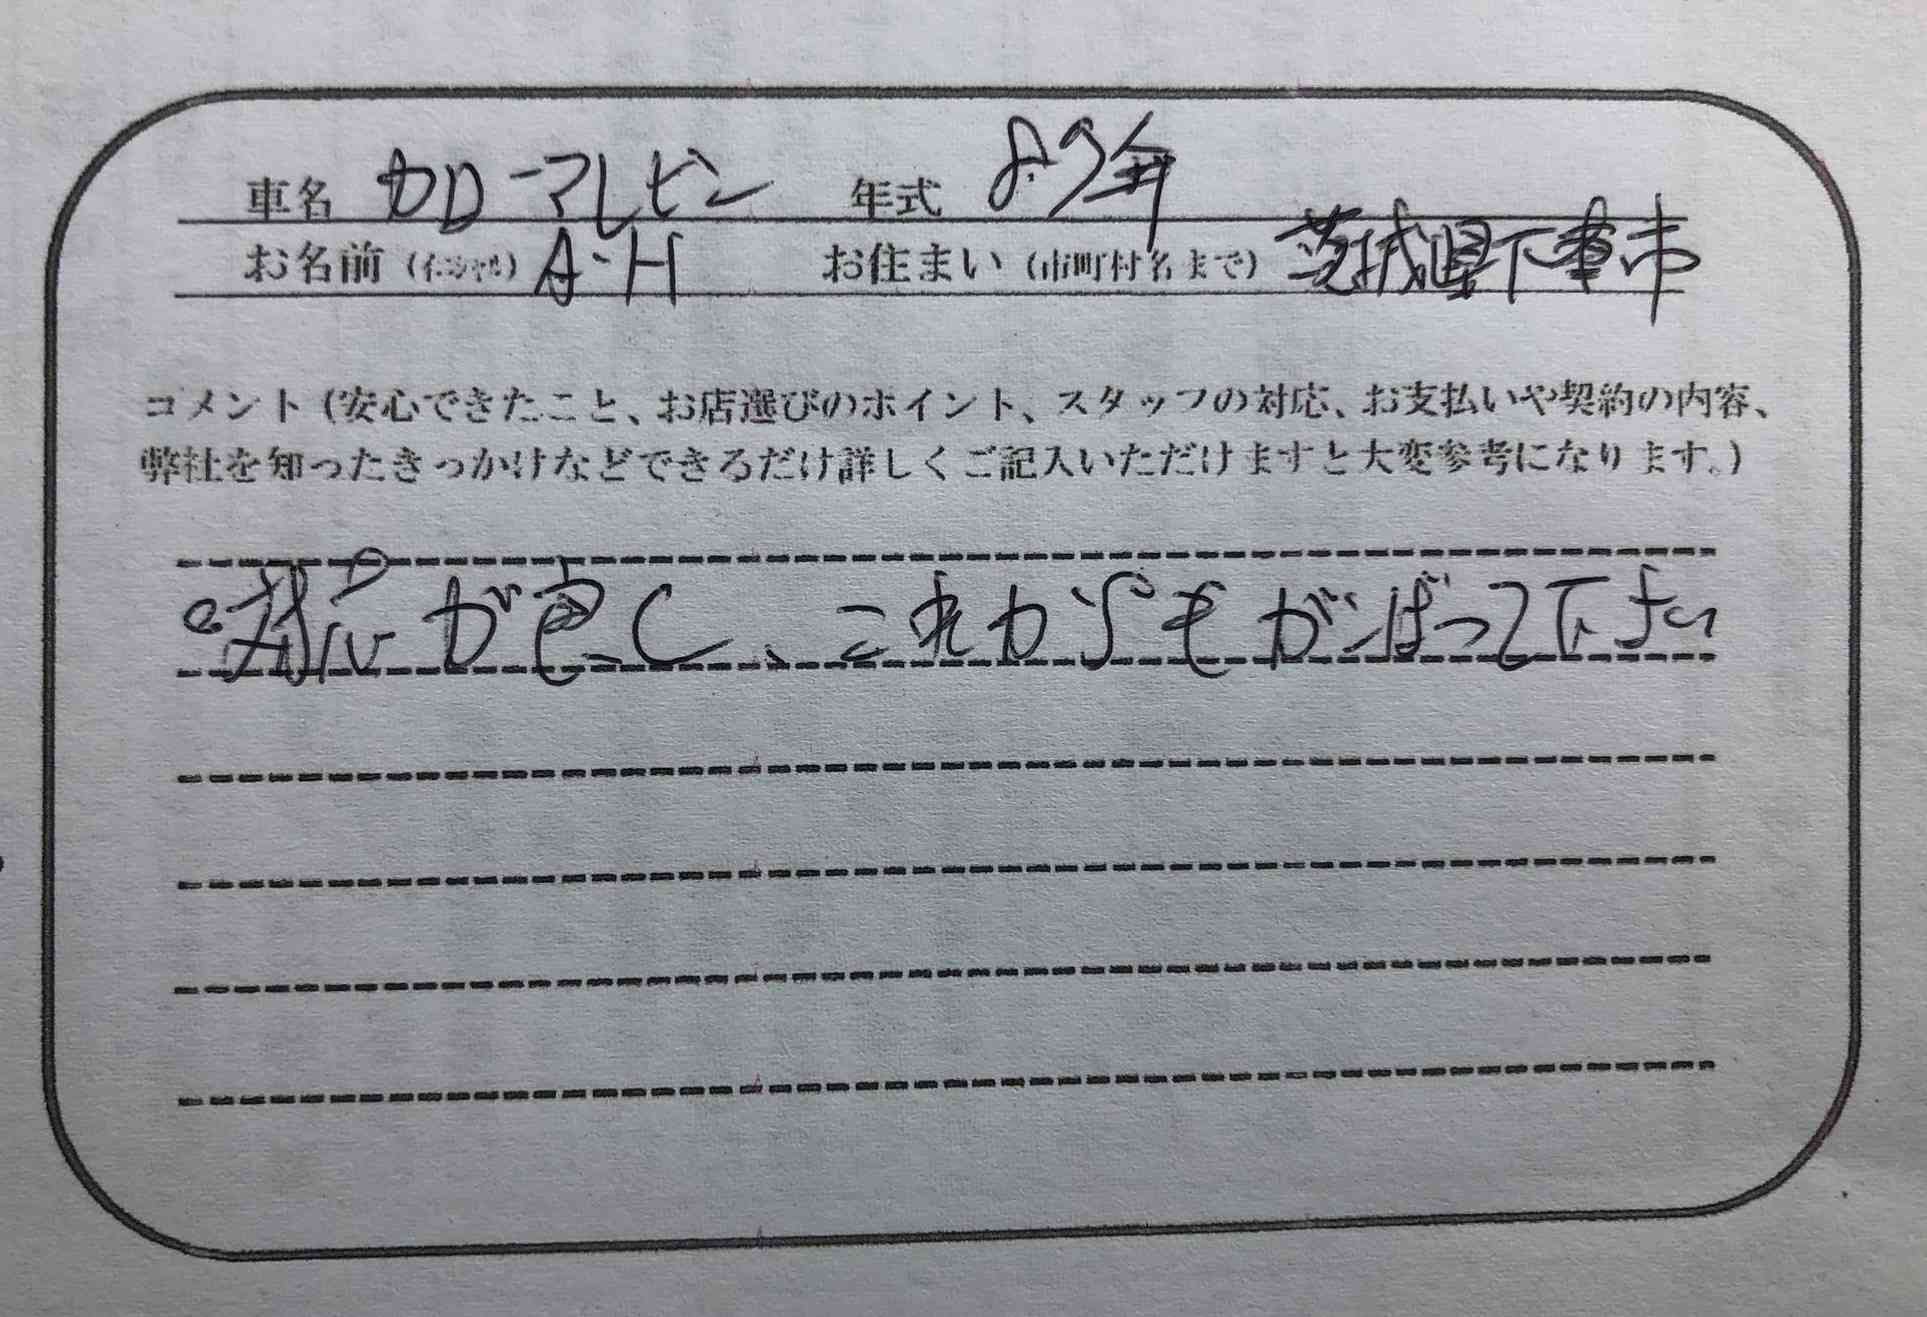 車名 カローラレビン 年式 87年
お名前(イニシャル) A・H お住まい(市町村名まで) 茨城県下妻市
コメント(安心できたこと、お店選びのポイント、スタッフの対応、お支払いや契約の内容、
弊社を知ったきっかけなどできるだけ詳しくご記入いただけますと大変参考になります。)
。対応が良く、これからもがんばって下さい